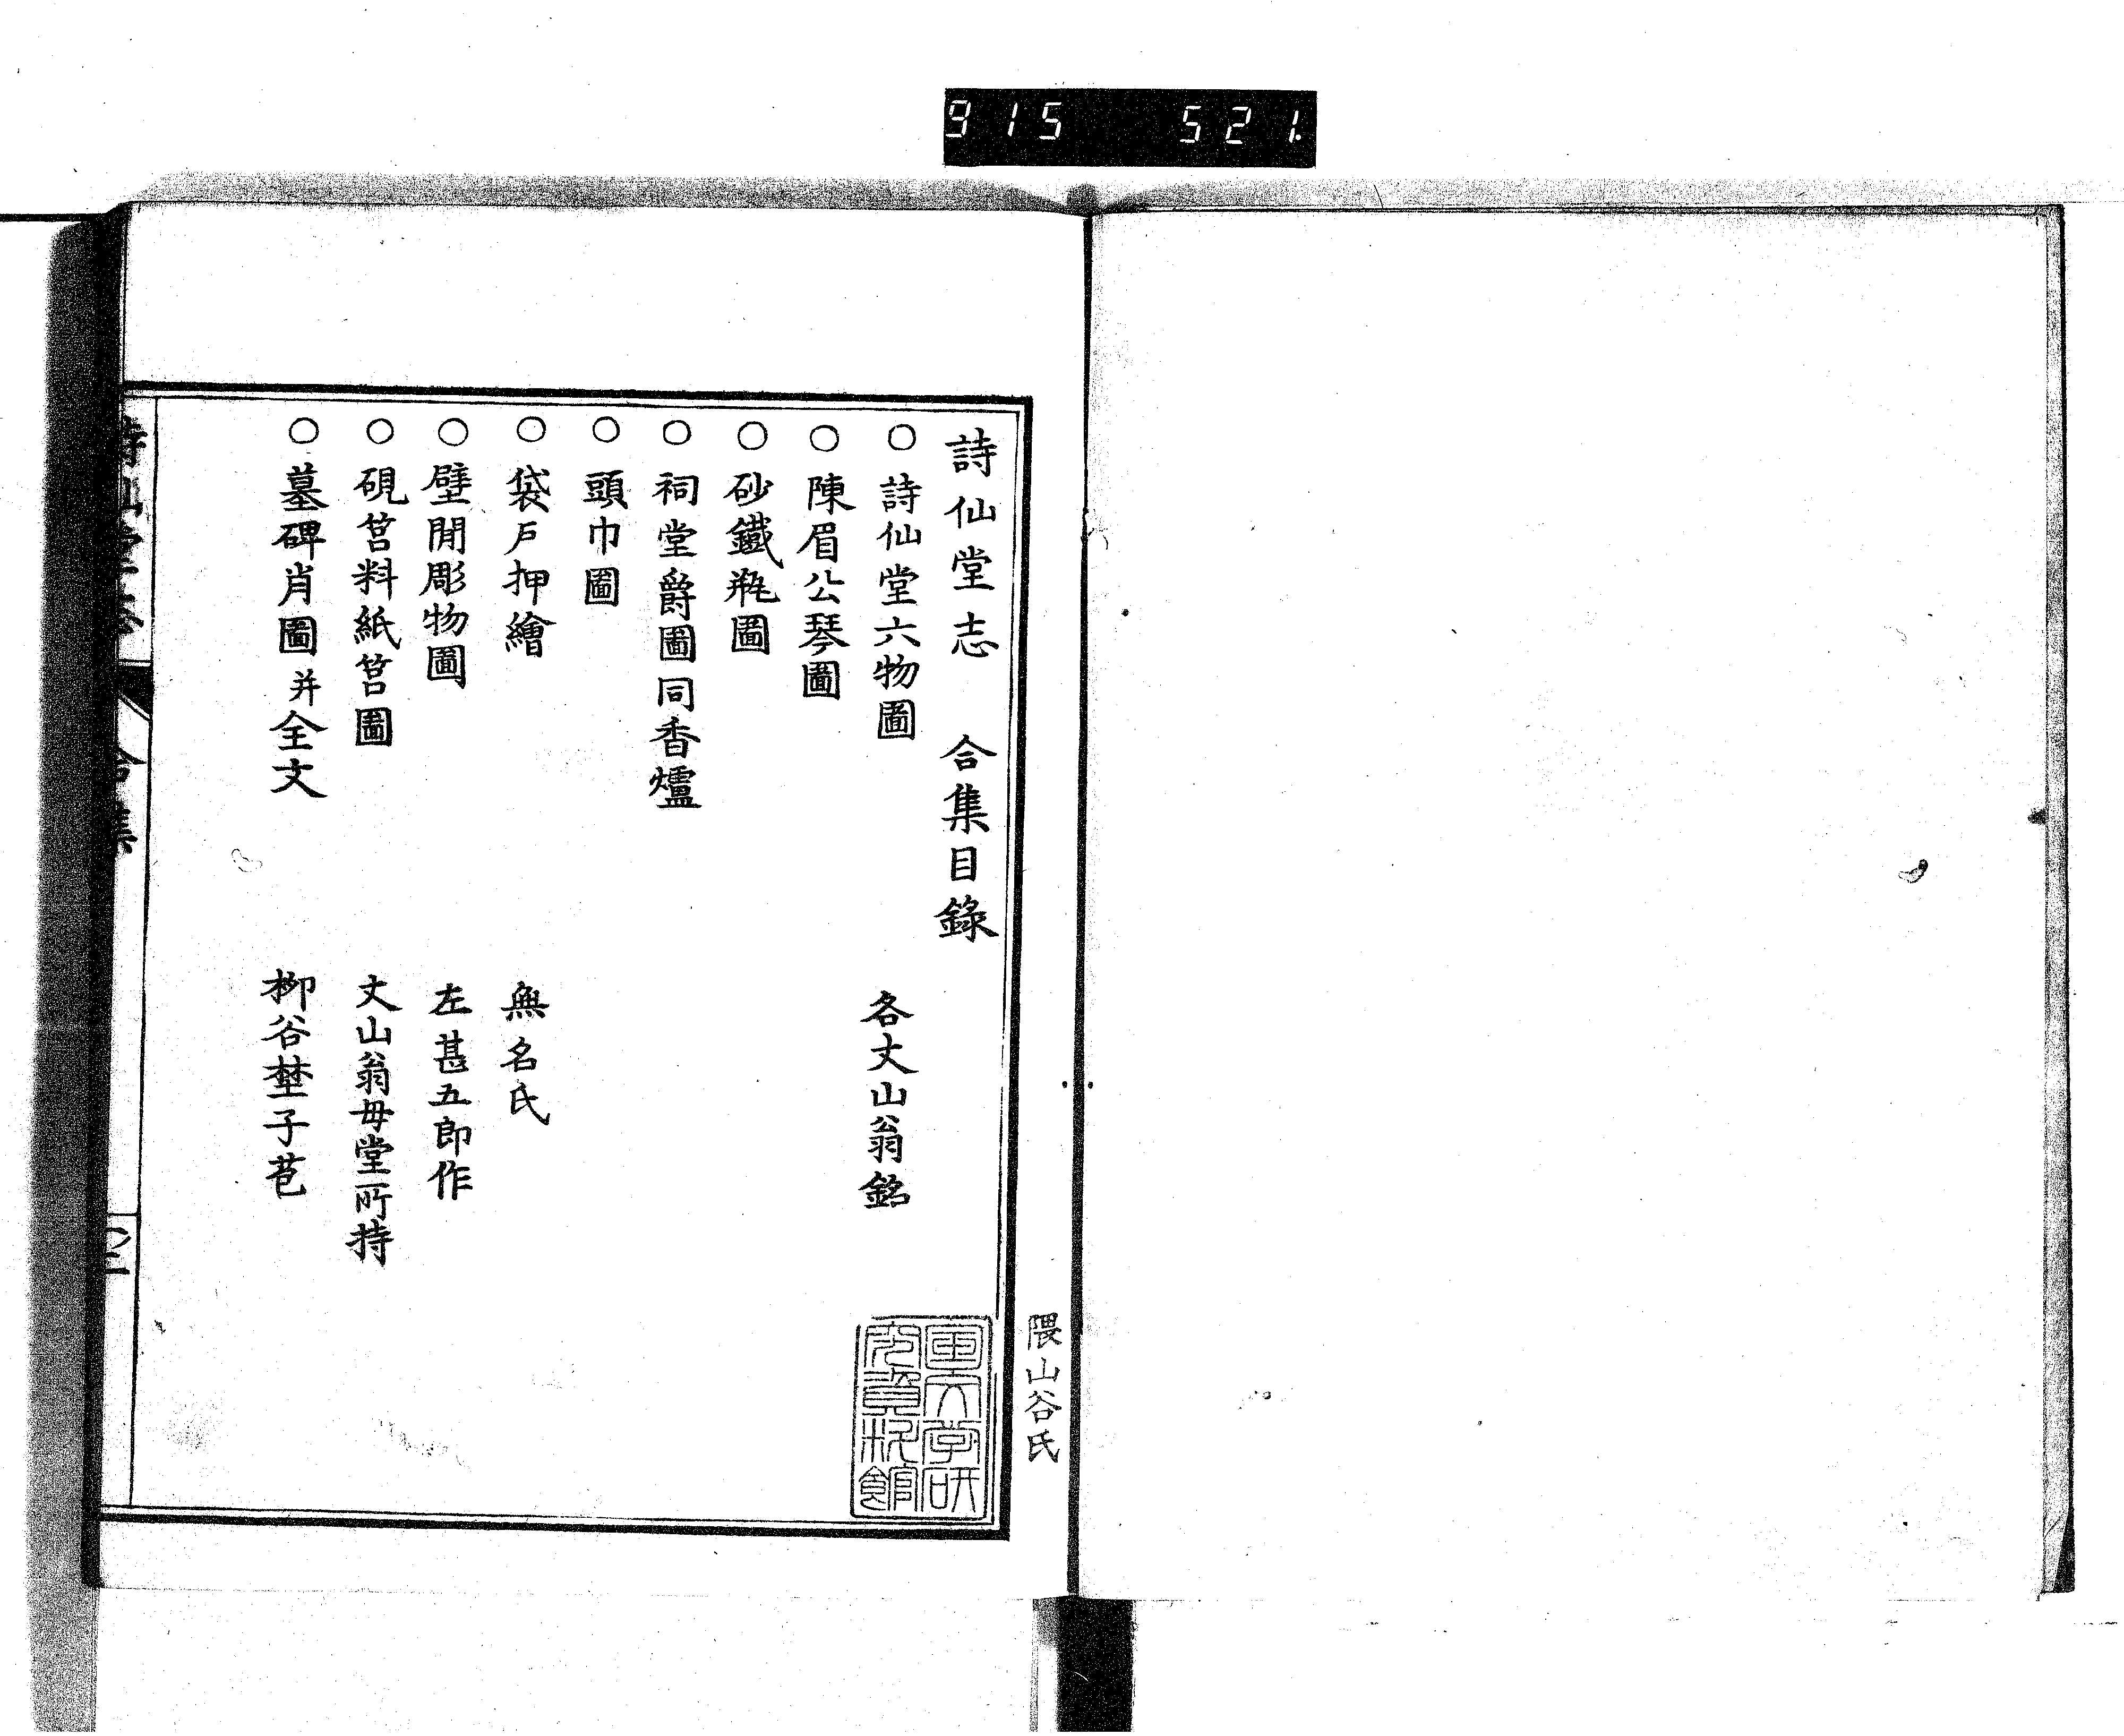 915 521.
隈山谷氏
詩仙堂志 合集目錄
○詩仙堂六物圖 各丈山翁銘
○陳眉公琴圖
○砂鐵瓶圖
○祠堂爵圖同香爐
○頭巾圖
○袋戶押繪 無名氏
○壁間彫物圖 左甚五郎作
○硯筥料紙筥圖 丈山翁母堂所持
○墓碑肖圖并全文 柳谷埜子苞
國文学研
究資料館